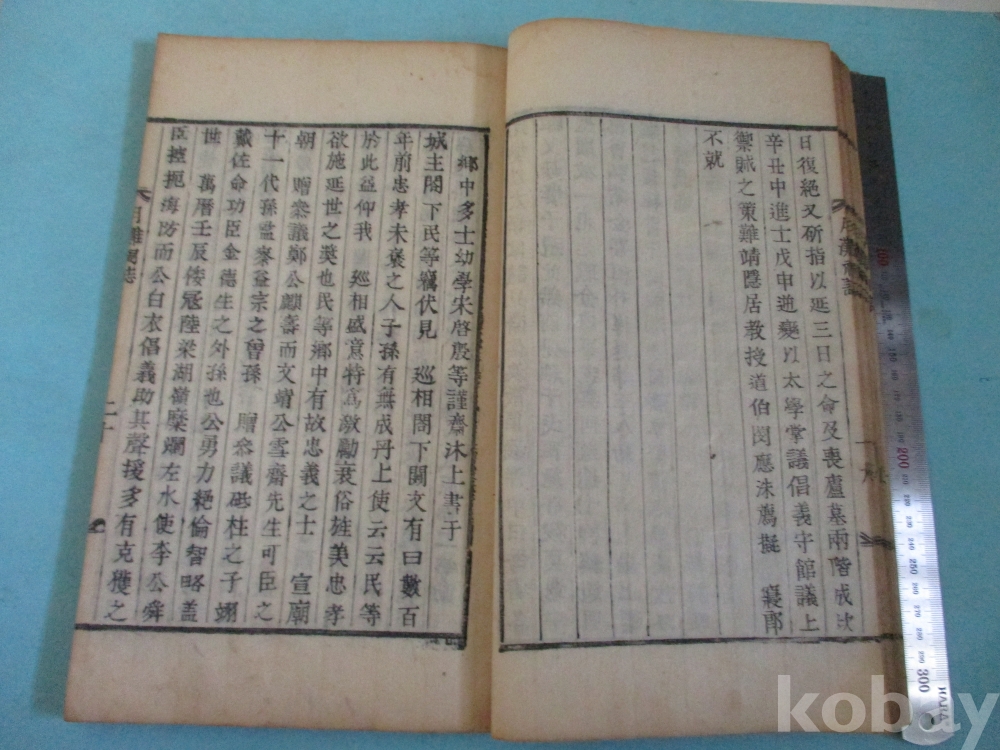 日復絶又斫指以延三日之命及喪廬墓兩階成㳄
辛丑中進士戊申逆變以太學掌議倡義守館議上
禦賊之策難靖隱居教授道伯閔應洙薦擬　寢郎
不就
鄉中多士幼學宋啓殷等謹齋沐上書于
城主閤下民等竊伏見　巡相閤下關文有曰數百
年前忠孝未褒之人子孫有無成丹上使云云民等
於此益仰我　巡相盛意特爲激勵衰俗旌美忠孝
欲施延世之奬也民等鄉中有故忠義之士　宣廟
朝　贈叅議鄭公麒壽而文靖公雪齋先生可臣之
十一代孫監察益宗之曾孫　贈叅議砥柱之子翊
戴佐命功臣金德生之外孫也公勇力絶倫智略盖
世　萬曆壬辰倭冦陸梁湖嶺糜爛左水使李公舜
臣控扼海防而公白衣倡義助其聲援多有克獲之
二十
200
250
300
kobay